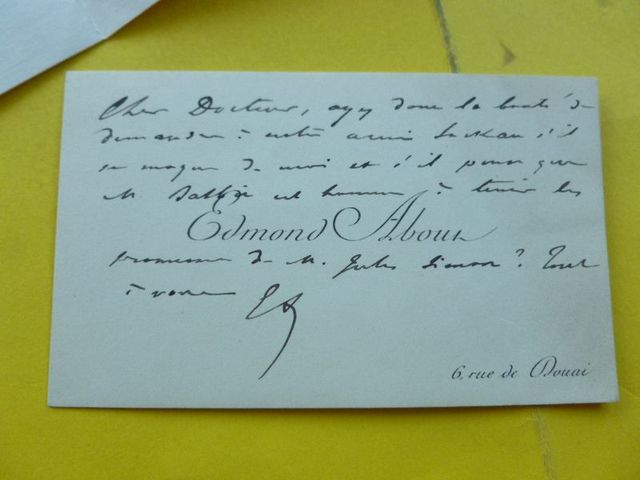 Cher Docteur, ayez donc la bonté de
demander à notre ami s'il
se moque de moi et s'il pense que
M. est homme à tenir les
Edmond About
promesses de M. Jules Simon? Tout
à vous EA
6, rue de Douai